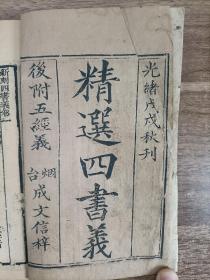 光緒戊戌秋刊
精選四書義
後附五經義
烟台成文信梓
新刻四書義卷一